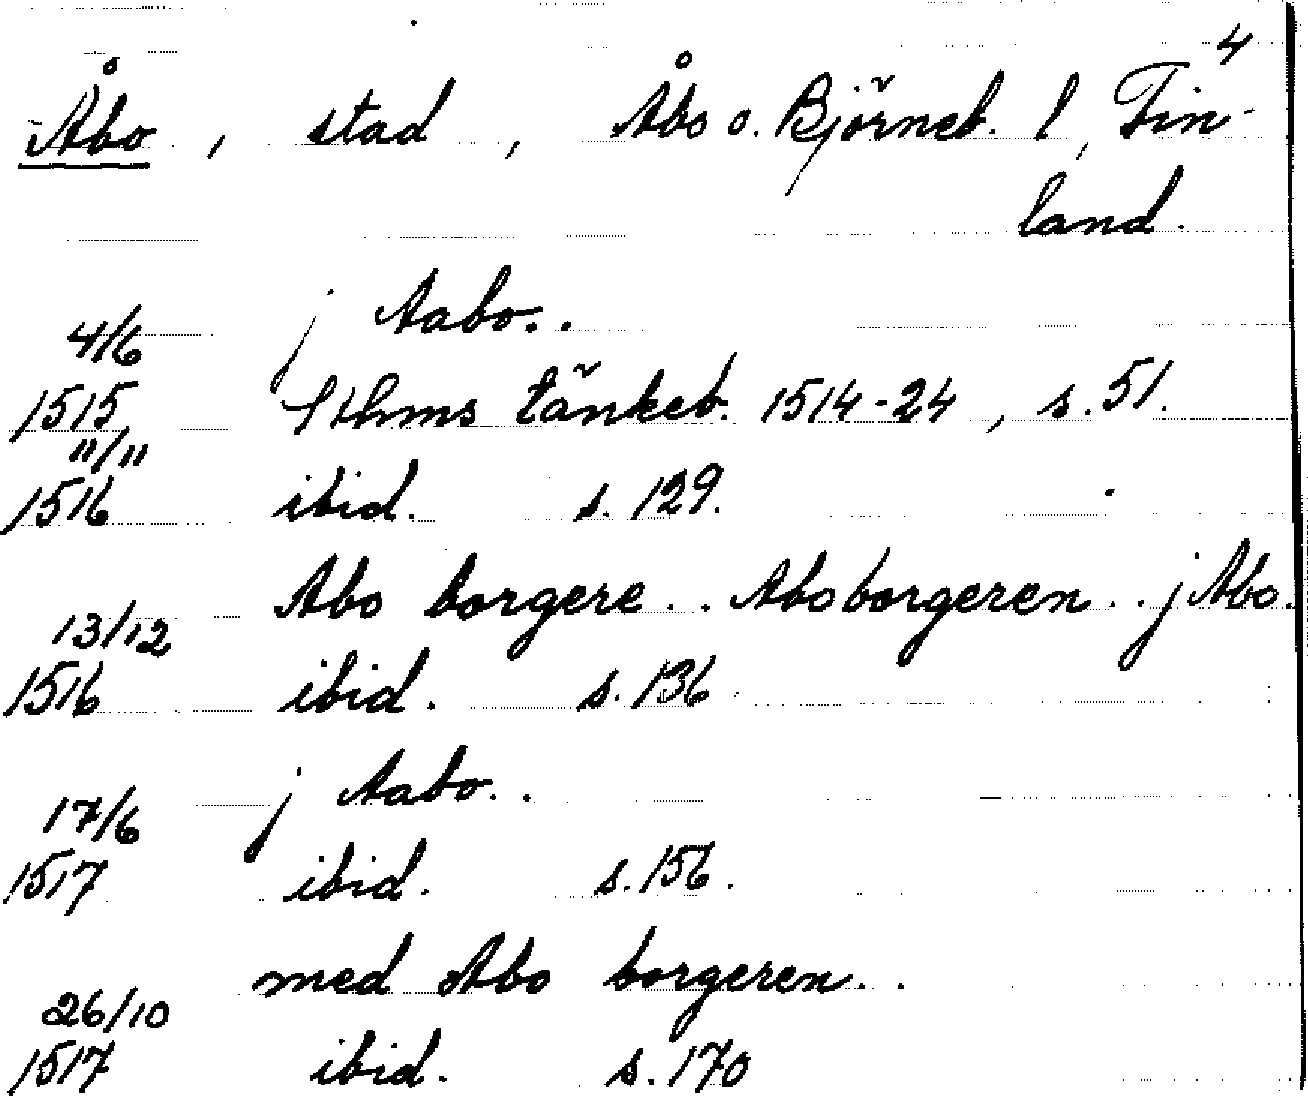 4
Åbo, stad, Åbo o. Björneb. l, Fin-
land.
j Aabo..
4/6
1515 Sthms tänkeb. 1514-24, s. 51.
11/11
1516 ibid. s. 129.
Abo borgere.. Aboborgeren.. j Abo.
13/12
1516 ibid. s. 136
j Aabo..
17/6
1517 ibid. s. 156.
med Abo borgeren..
26/10
1517 ibid. s. 170